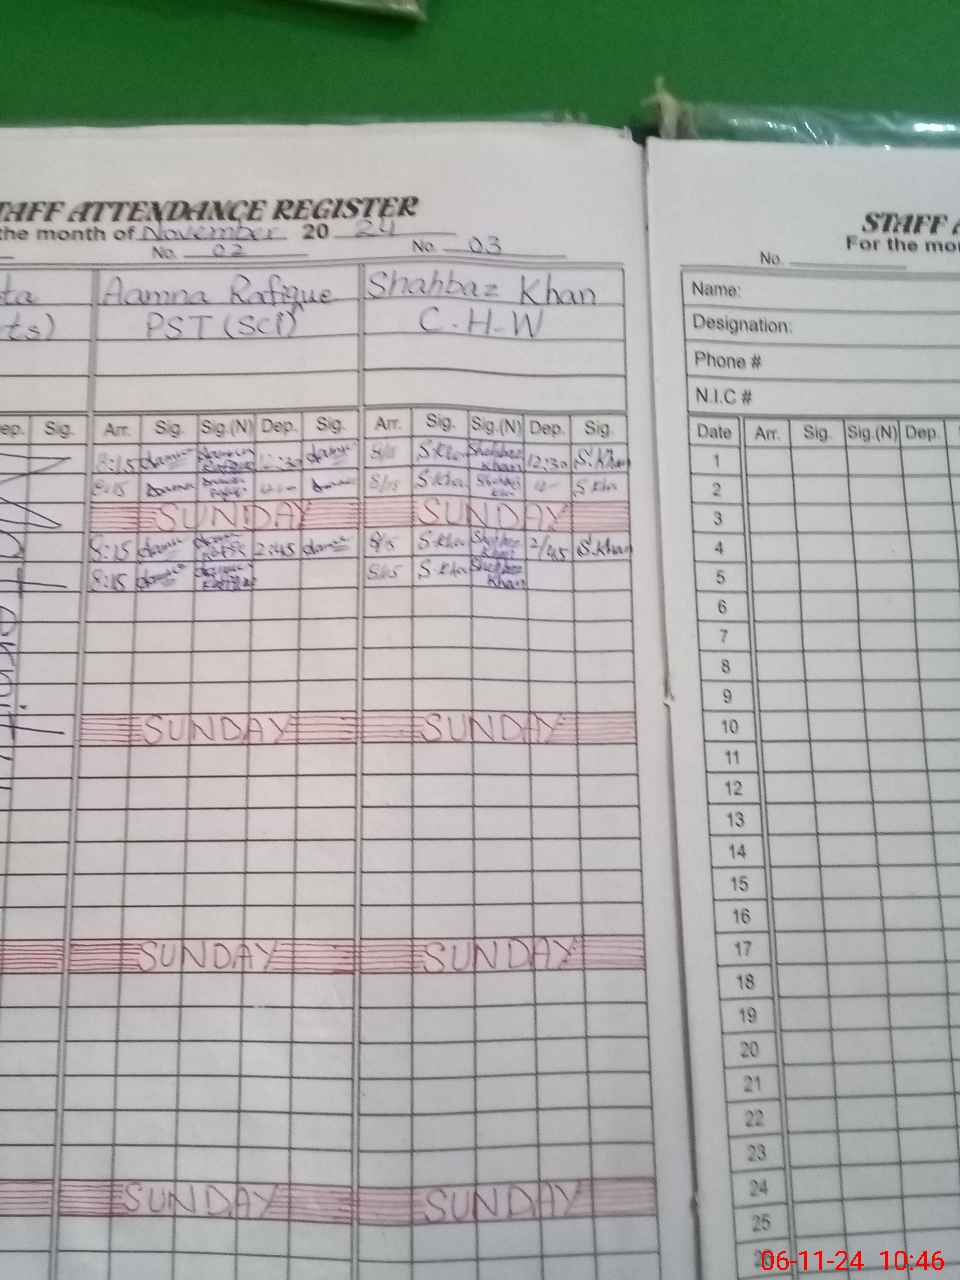 TAFF ATTENDANCE REGISTER
the month of November 20 24
No. 02 No. 03
ta Aamna Rafique Shahbaz Khan
ts) PST (Sci) C.H.W
ep. Sig. Arr. Sig. Sig.(N) Dep. Sig. Arr. Sig. Sig.(N) Dep. Sig.
8:15 12:30 8/15 S.Kha Shahbaz Khan 12:30 S.Khan
8:15 8/15 S.Kha S Kha
SUNDAY SUNDAY
8:15 2:45 8/15 S.Kha 2/45 S.Khan
8:15 8/15 S.Kha Khan
SUNDAY SUNDAY
SUNDAY SUNDAY
SUNDAY SUNDAY
STAFF A
For the mo
No.
Name:
Designation:
Phone #
N.I.C #
Date Arr. Sig. Sig.(N) Dep.
1
2
3
4
5
6
7
8
9
10
11
12
13
14
15
16
17
18
19
20
21
22
23
24
25
06-11-24 10:46